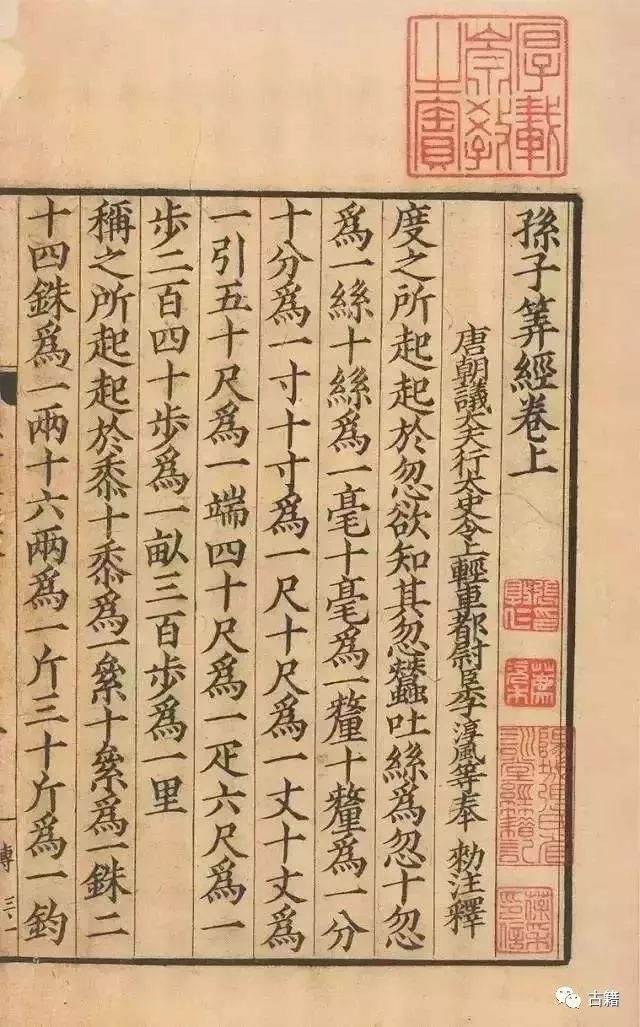 孫子筭經卷上
唐朝議大夫行太史令上輕車都尉臣李淳風等奉 勑注釋
度之所起起於忽欲知其忽蠶吐絲爲忽十忽
爲一絲十絲爲一毫十毫爲一氂十氂爲一分
十分爲一寸十寸爲一尺十尺爲一丈十丈爲
一引五十尺爲一端四十尺爲一疋六尺爲一
歩二百四十歩爲一畝三百歩爲一里
稱之所起起於黍十黍爲一絫十絫爲一銖二
十四銖爲一兩十六兩爲一斤三十斤爲一鈞
厚載崇教之寶
古籍